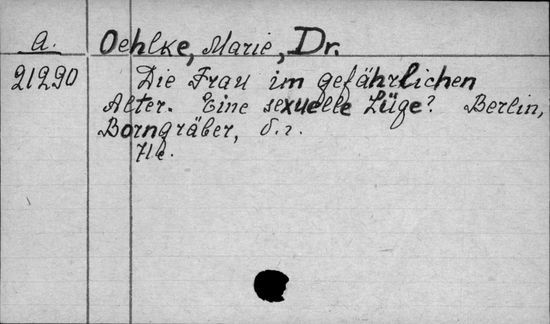 a. Oehlke, Marie, Dr.
21290 Die Frau im gefährlichen
Alter. Eine sexuelle Lüge? Berlin,
Borngräber,